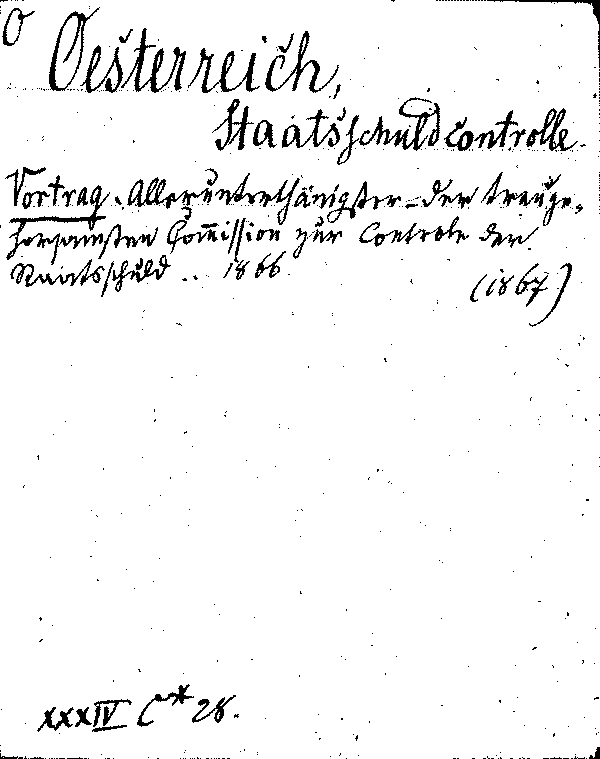 O
Oesterreich,
Staatsschuldcontrolle.
Vortrag. Allerunterthänigster - der treuge-
horsamsten Com̄ission zur Controle der
Staatsschuld .. 1866
(1867)
XXXIV C * 28.